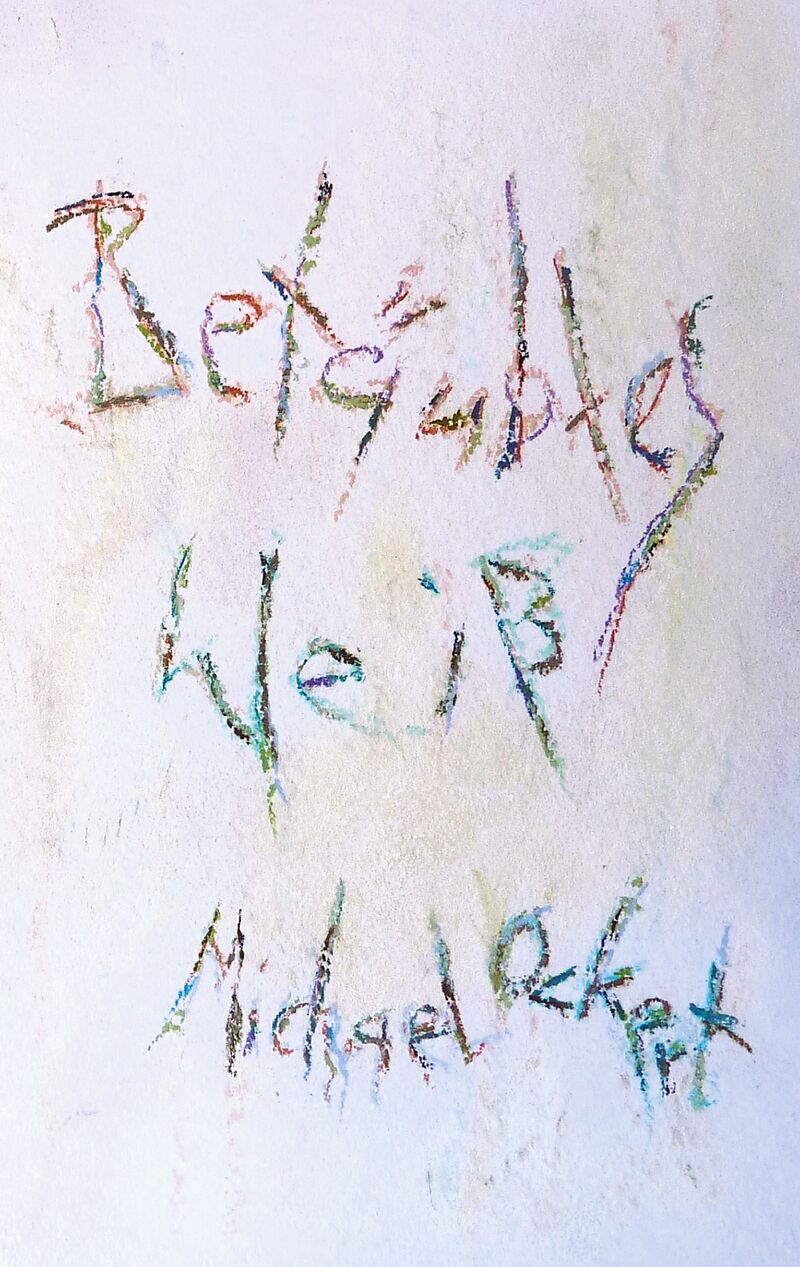 Betäubtes
Weiß
Michael Ackert